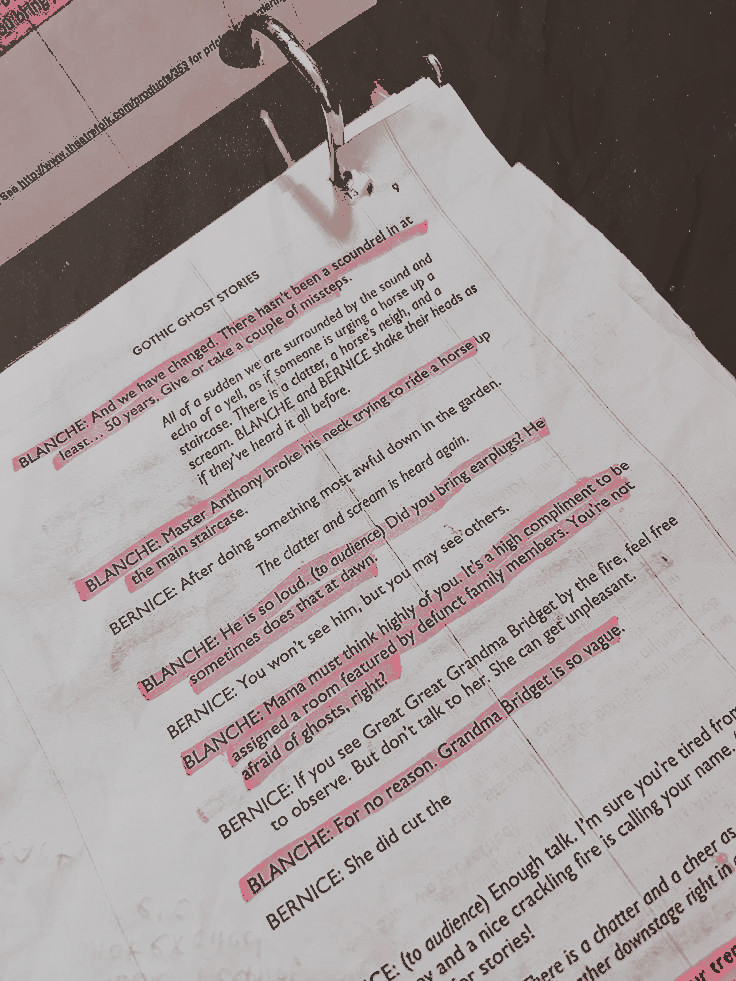 See http://www.theatrefolk.com/products/353 for
9
GOTHIC GHOST STORIES
BLANCHE: And we have changed. There hasn't been a scoundrel in at
least... 50 years. Give or take a couple of missteps.
All of a sudden we are surrounded by the sound and
echo of a yell, as if someone is urging a horse up a
staircase. There is a clatter, a horse's neigh, and a
scream. BLANCHE and BERNICE shake their heads as
if they've heard it all before.
BLANCHE: Master Anthony broke his neck trying to ride a horse up
the main staircase.
BERNICE: After doing something most awful down in the garden.
The clatter and scream is heard again.
BLANCHE: He is so loud. (to audience) Did you bring earplugs? He
sometimes does that at dawn.
BERNICE: You won't see him, but you may see others.
BLANCHE: Mama must think highly of you. It's a high compliment to be
assigned a room featured by defunct family members. You're not
afraid of ghosts, right?
BERNICE: If you see Great Great Grandma Bridget by the fire, feel free
to observe. But don't talk to her. She can get unpleasant.
BLANCHE: For no reason. Grandma Bridget is so vague.
BERNICE: She did cut the
(to audience) Enough talk. I'm sure you're tired from
and a nice crackling fire is calling your name.
for stories!
There is a chatter and a cheer as
downstage right in